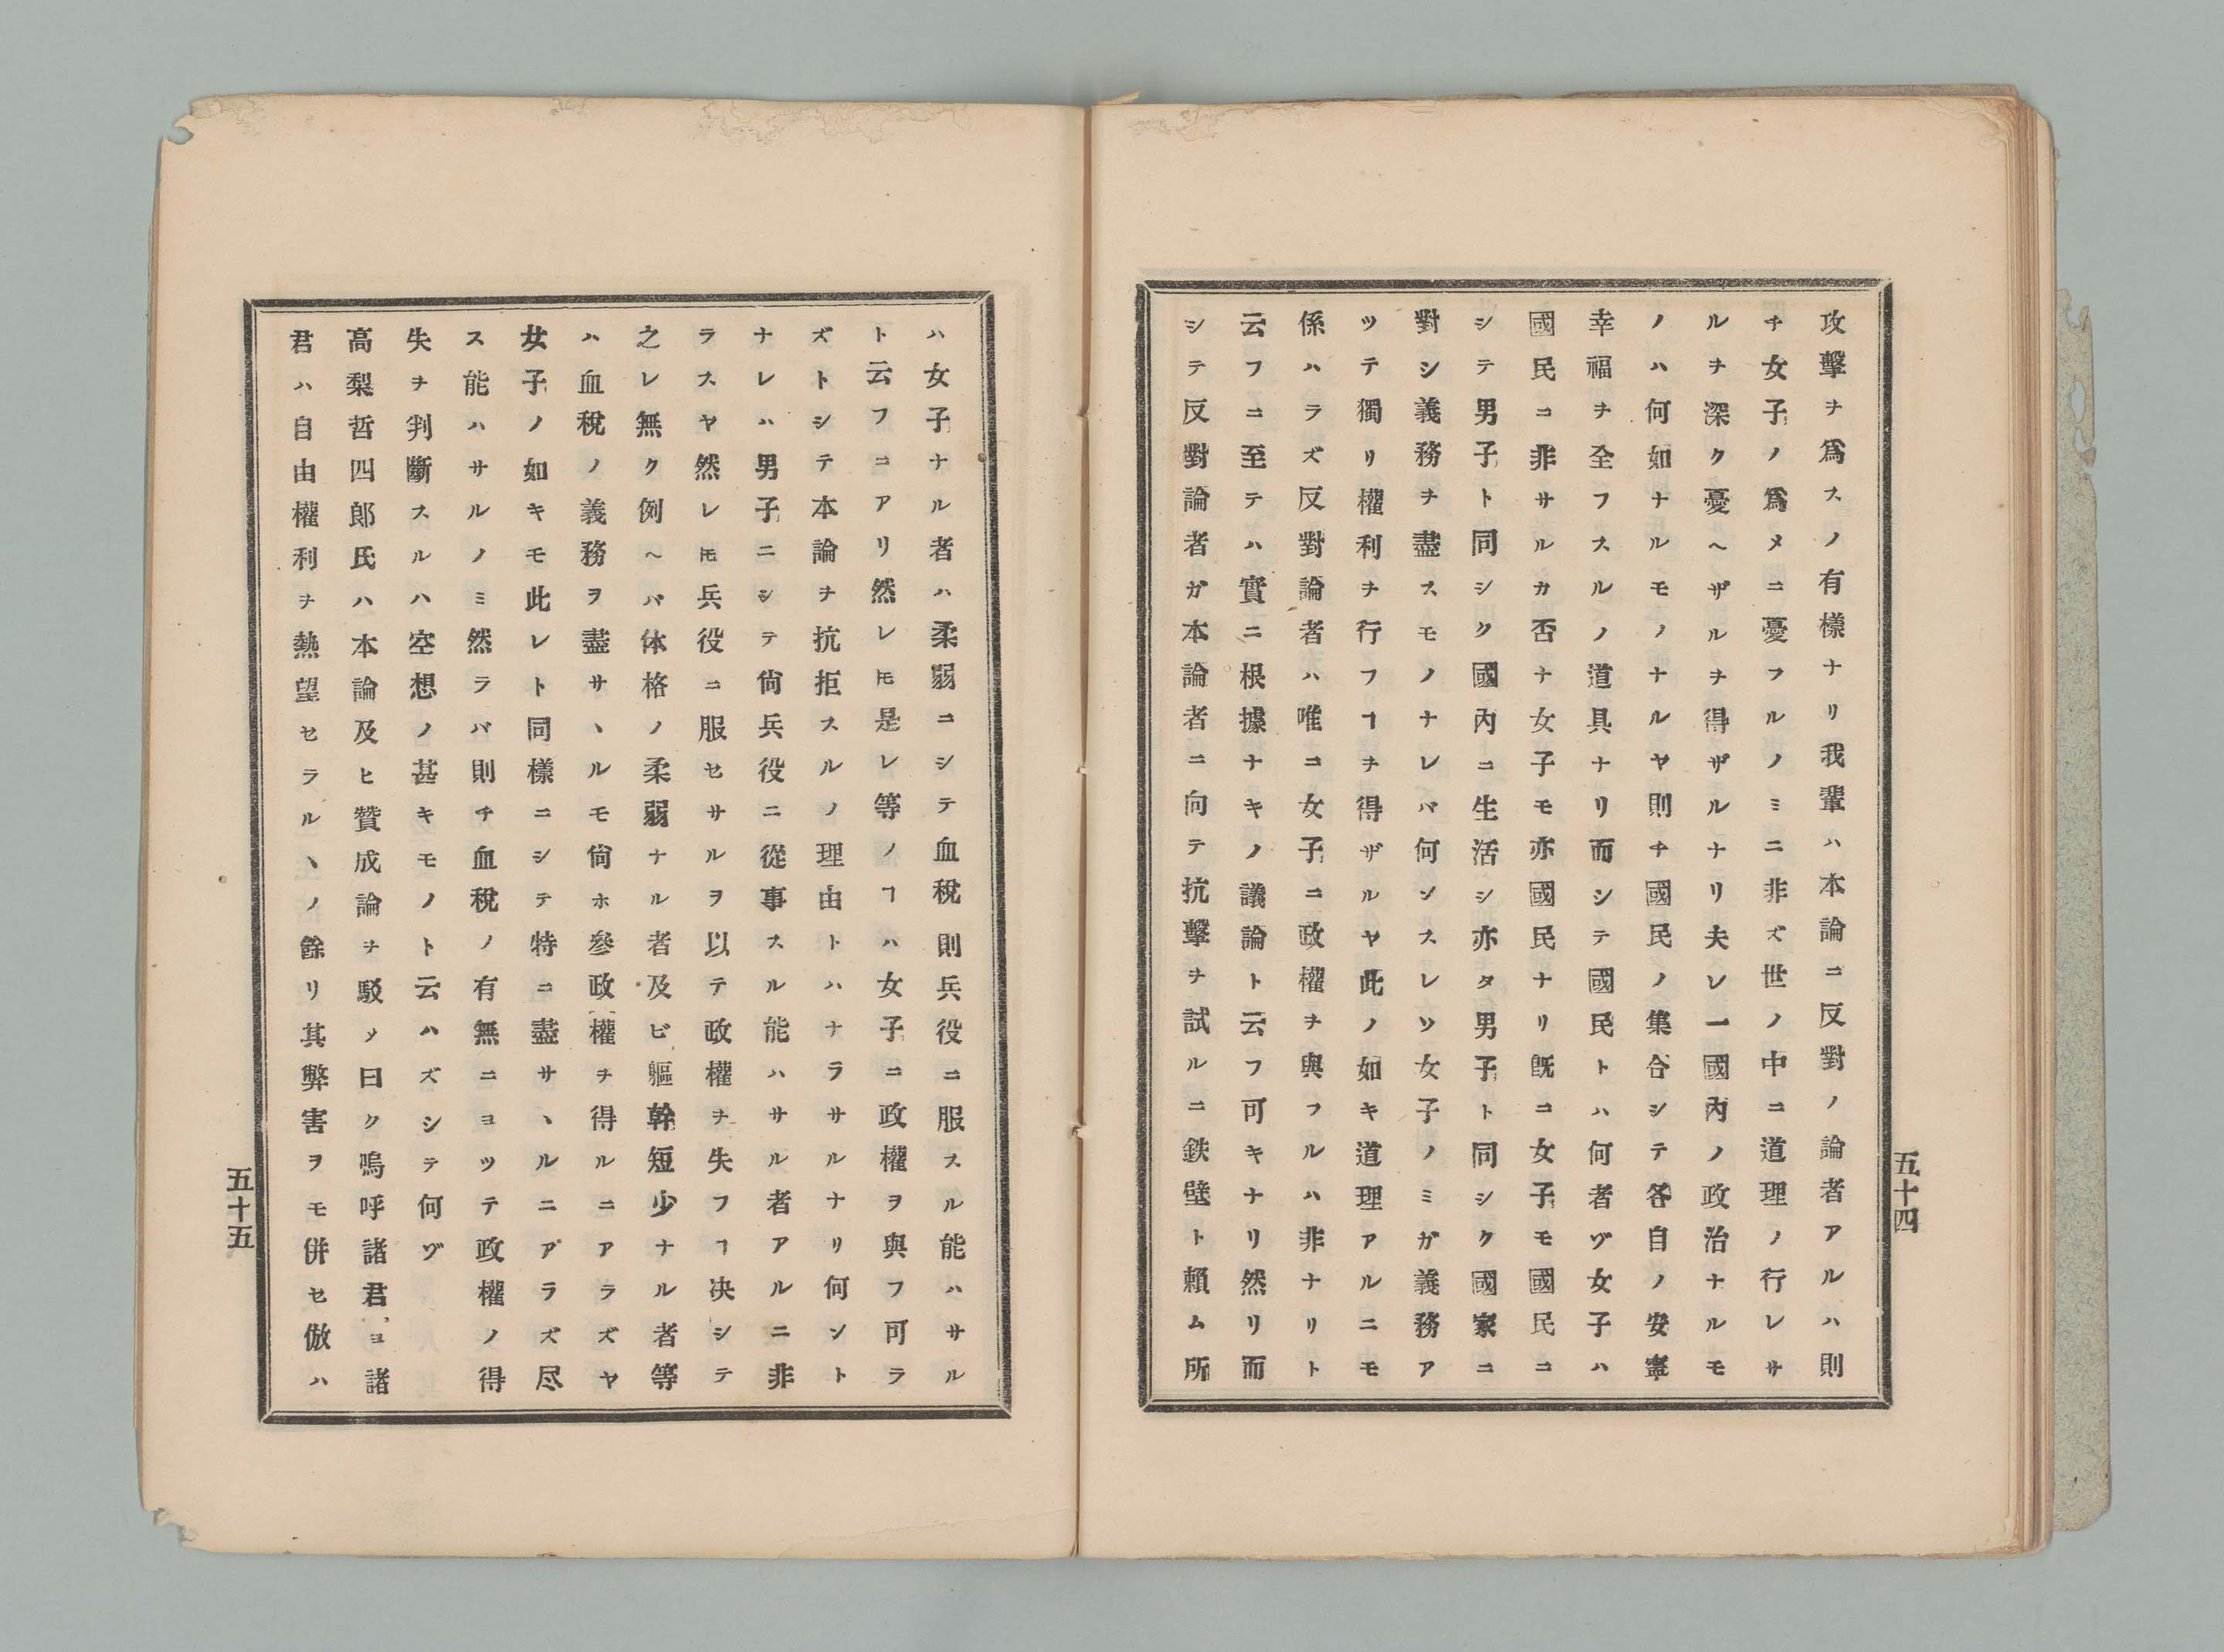 攻擊ヲ爲スノ有樣ナリ我輩ハ本論ニ反對ノ論者アルハ則
チ女子ノ爲メニ憂フルノミニ非ズ世ノ中ニ道理ノ行レサ
ルヲ深ク憂ヘザルヲ得ザルナリ夫レ一國內ノ政治ナルモ
ノハ何如ナルモノナルヤ則チ國民ノ集合シテ各自ノ安寧
幸福ヲ全フスルノ道具ナリ而シテ國民トハ何者ゾ女子ハ
國民ニ非サルカ否ナ女子モ亦國民ナリ既ニ女子モ國民ニ
シテ男子ト同シク國內ニ生活シ亦タ男子ト同シク國家ニ
對シ義務ヲ盡スモノナレバ何ンスレソ女子ノミガ義務ア
ツテ獨リ權利ヲ行フヿヲ得ザルヤ此ノ如キ道理アルニモ
係ハラズ反對論者ハ唯ニ女子ニ政權ヲ與フルハ非ナリト
云フニ至テハ實ニ根據ナキノ議論ト云フ可キナリ然リ而
シテ反對論者ガ本論者ニ向テ抗擊ヲ試ルニ鉄壁ト賴ム所
五十四
ハ女子ナル者ハ柔弱ニシテ血稅則兵役ニ服スル能ハサル
ト云フニアリ然レ𪜈是レ等ノヿハ女子ニ政權ヲ與フ可ラ
ズトシテ本論ヲ抗拒スルノ理由トハナラサルナリ何ント
ナレハ男子ニシテ尙兵役ニ從事スル能ハサル者アルニ非
ラスヤ然レ𪜈兵役ニ服セサルヲ以テ政權ヲ失フヿ决シテ
之レ無ク例ヘバ体格ノ柔弱ナル者及ビ軀幹短少ナル者等
ハ血稅ノ義務ヲ盡サヽルモ尙ホ參政權ヲ得ルニアラズヤ
女子ノ如キモ此レト同樣ニシテ特ニ盡サヽルニアラズ尽
ス能ハサルノミ然ラバ則チ血稅ノ有無ニヨツテ政權ノ得
失ヲ判斷スルハ空想ノ甚キモノト云ハズシテ何ゾ
高梨哲四郞氏ハ本論及ヒ贊成論ヲ駁メ曰ク嗚呼諸君ヨ諸
君ハ自由權利ヲ熱望セラルヽノ餘リ其弊害ヲモ併セ倣ハ
五十五